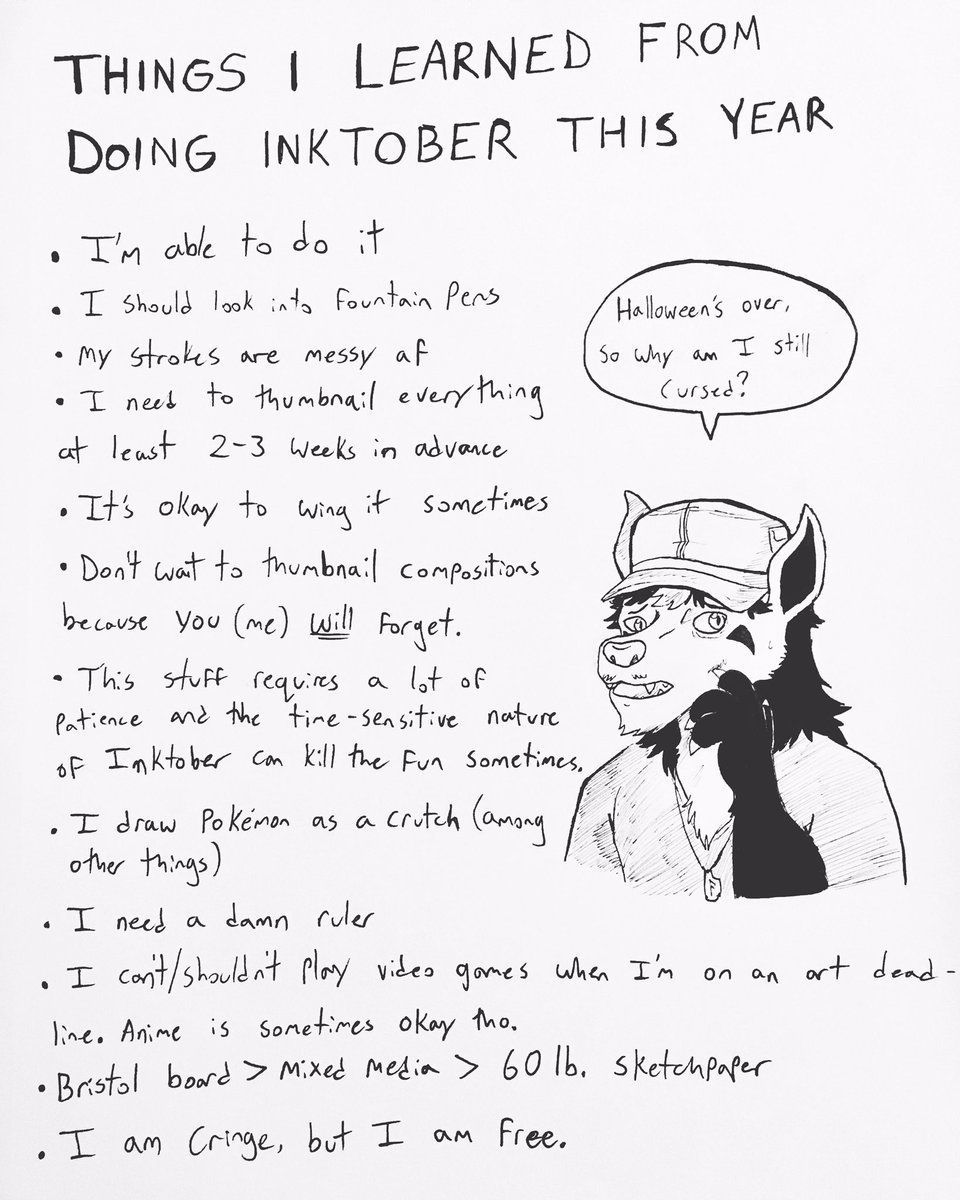 THINGS I LEARNED FROM
DOING INKTOBER THIS YEAR
• I'm able to do it
• I should look into fountain pens
• My strokes are messy af
• I need to thumbnail everything
at least 2-3 weeks in advance
• It's okay to wing it sometimes
• Don't wait to thumbnail compositions
because you (me) will forget.
• This stuff requires a lot of
patience and the time-sensitive nature
of Inktober can kill the fun sometimes.
• I draw Pokémon as a crutch (among
other things)
• I need a damn ruler
• I can't/shouldn't play video games when I'm on an art dead-
line. Anime is sometimes okay tho.
• Bristol board > mixed media > 60 lb. sketchpaper
• I am cringe, but I am free.
Halloween's over,
so why am I still
cursed?